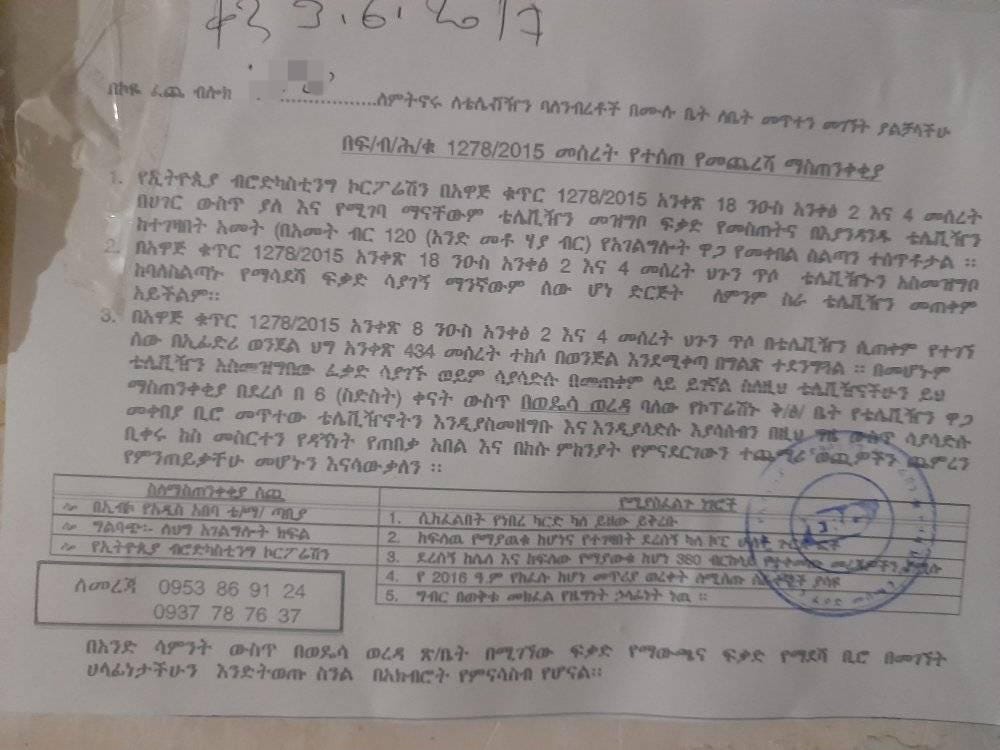 ቀን 3.6.2017
በኮዬ ፈጨ ብሎክ ..................ለምትኖሩ ለቴሌቭዥን ባለንብረቶች በሙሉ ቤት ለቤት መጥተን መገኘት ያልቻላችሁ
በፍ/ብ/ሕ/ቁ 1278/2015 መሰረት የተሰጠ የመጨረሻ ማስጠንቀቂያ
1. የኢትዮጲያ ብሮድካስቲንግ ኮርፖሬሽን በአዋጅ ቁጥር 1278/2015 አንቀጽ 18 ንዑስ አንቀፅ 2 እና 4 መሰረት
በሀገር ውስጥ ያለ እና የሚገባ ማናቸውም ቴሌቪዥን መዝግቦ ፍቃድ የመስጠትና በእያንዳንዱ ቴሌቪዥን
ከተገዛበት አመት (በአመት ብር 120 (አንድ መቶ ሃያ ብር) የአገልግሎት ዋጋ የመቀበል ስልጣን ተሰጥቶታል ፡፡
2. በአዋጅ ቁጥር 1278/2015 አንቀጽ 18 ንዑስ አንቀፅ 2 እና 4 መሰረት ህጉን ጥሶ ቴሌቪዥኑን አስመዝግቦ
ከባለስልጣኑ የማሳደሻ ፍቃድ ሳያገኝ ማንኛውም ሰው ሆነ ድርጅት ለምንም ስራ ቴሌቪዥን መጠቀም
አይችልም፡፡
3. በአዋጅ ቁጥር 1278/2015 አንቀጽ 8 ንዑስ አንቀፅ 2 እና 4 መሰረት ህጉን ጥሶ በቴሌቪዥን ሲጠቀም የተገኘ
ሰው በኢፌድሪ ወንጀል ህግ አንቀጽ 434 መሰረት ተከሶ በወንጅል እንደሚቀጣ በግልጽ ተደንግጓል ፡፡ በመሆኑም
ቴሌቪዥን አስመዝግበው ፈቃድ ሳያገኙ ወይም ሳያሳድሱ በመጠቀም ላይ ይገኛል ስለዚህ ቴሌቪዥናችሁን ይህ
ማስጠንቀቂያ በደረሰ በ 6 (ስድስት) ቀናት ውስጥ በወዴሳ ወረዳ ባለው የኮፐሬሽኑ ቅ/ፅ/ ቤት የቴሌቪዥን ዋጋ
መቀበያ ቢሮ መጥተው ቴሌቪዥኖትን እንዲያስመዘግቡ እና እንዲያሳድሱ እያሳሰብን በዚህ ግዜ ውስጥ ሳያሳድሱ
ቢቀሩ ክስ መስርተን የዳኝነት የጠበቃ አበል እና በክሱ ምክንያት የምናደርገውን ተጨማሪ ወጪዎችን ጨምረን
የምንጠይታችሁ መሆኑን እናሳውቃለን ፡፡
ስለማስጠንቀቂያ ሰጪ
የሚያስፈልጉ ነገሮች
በኢብኮ የአዲስ አበባ ቴ/ማ/ ጣቢያ
1. ሲከፈልበት የነበረ ካርድ ካለ ይዘው ይቅረቡ
ግልባጭ፡- ለህግ አገልግሎት ክፍል
2. ከፍለዉ የማያዉቁ ከሆነና የተገዛበት ደረሰኝ ካለ ኮፒ
የኢትዮጲያ ብሮድካስቲንግ ኮርፖሬሽን
3. ደረሰኝ ከሌለ እና ከፍለው የማያውቁ ከሆነ 360
4. የ 2016 ዓ.ም የከፈሉ ከሆነ መጥሪያ ወረቀት ለሚሰጡ
5. ግብር በወቅቱ መክፈል የዜግነት ኃላፊነት ነዉ ፡፡
ለመረጃ 0953 86 91 24
0937 78 76 37
በአንድ ሳምንት ውስጥ በወዴሳ ወረዳ ጽ/ቤት በሚገኘው ፍቃድ የማውጫና ፍቃድ የማደሻ ቢሮ በመገኘት
ሀላፊነታችሁን እንድትወጡ ስንል በአክብሮት የምናሳስብ የሆናል፡፡